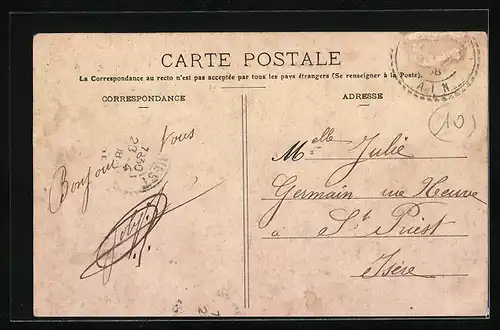 CARTE POSTALE
La Correspondance au recto n'est pas acceptée par tous les pays étrangers (Se renseigner à la Poste).
CORRESPONDANCE
ADRESSE
AIN
(10)
Bonjour Vous
Melle Julie
Germain rue Neuve
à St Priest
Isère